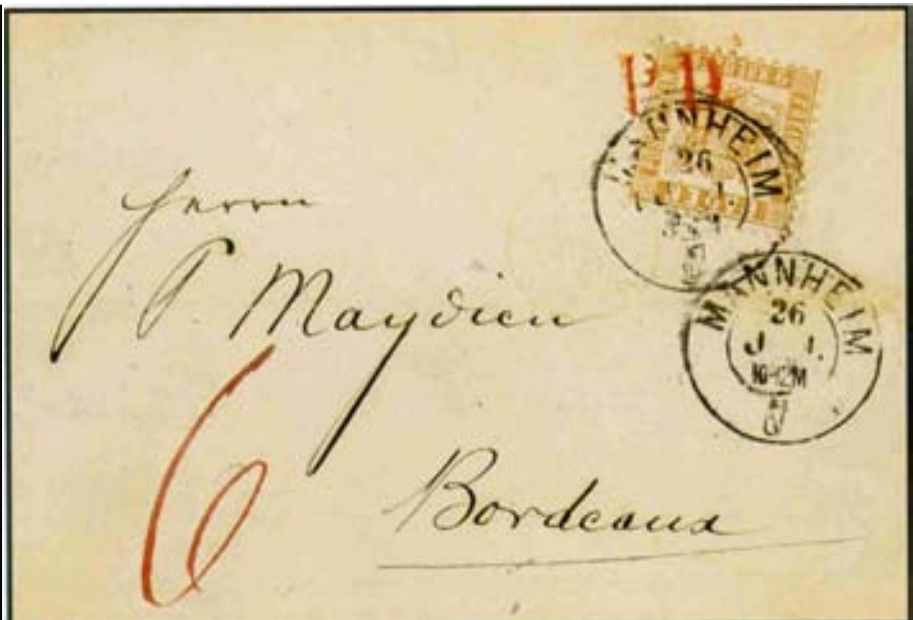 P.D.
MANNHEIM
26
MANNHEIM
26
J 1.
10-12M
Herrn
P. Maydieu
Bordeaux
6